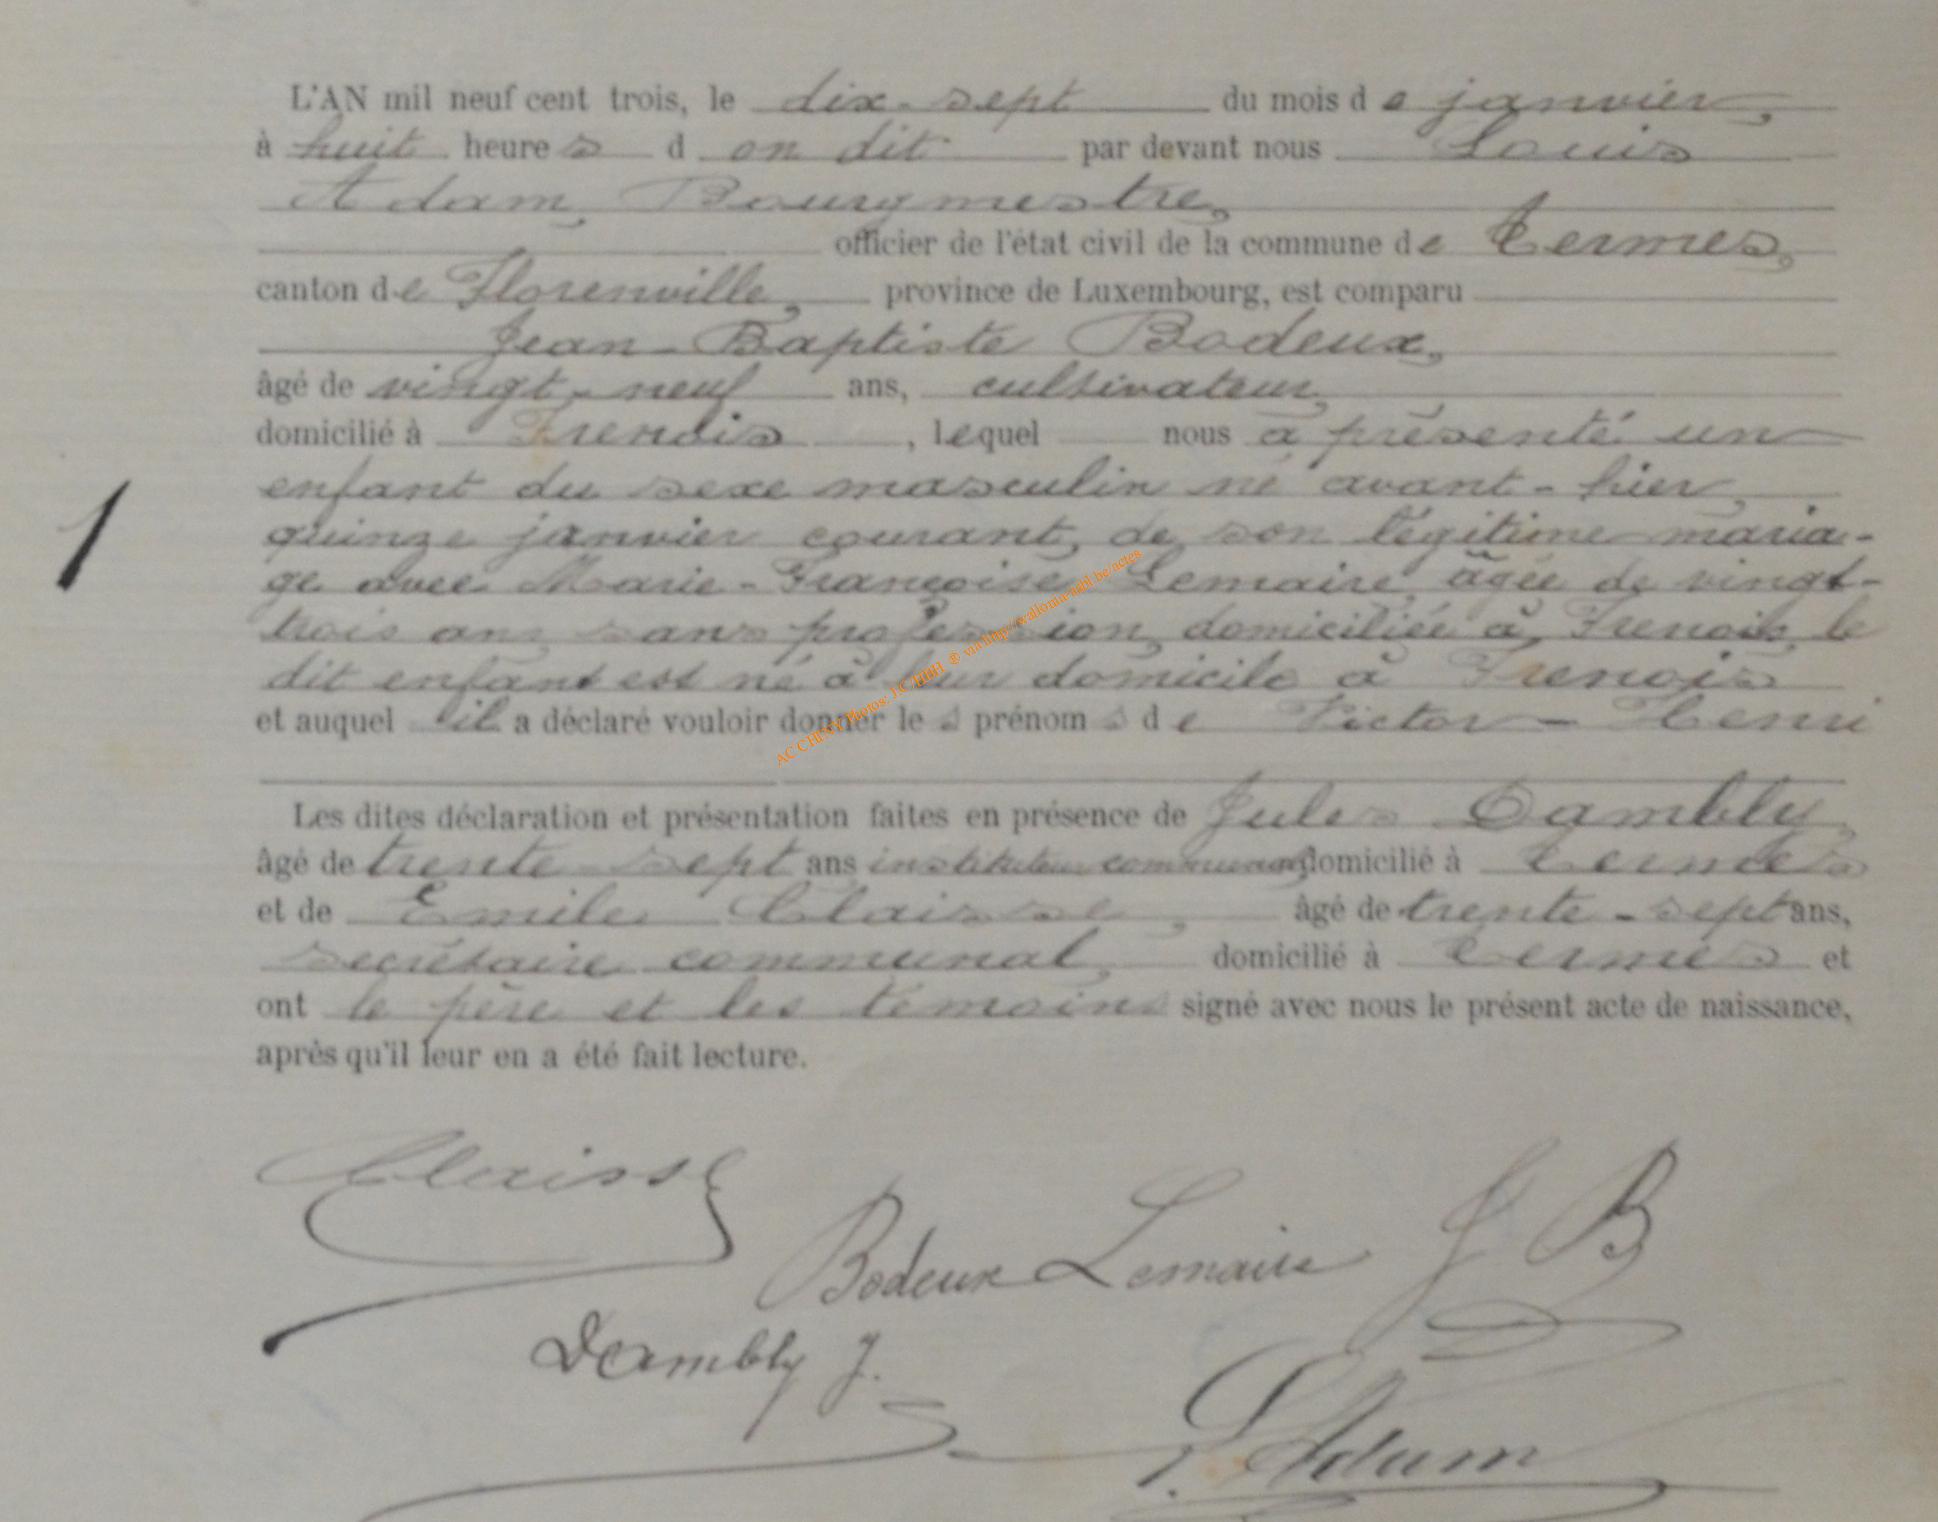 L'AN mil neuf cent trois, le dix-sept du mois de janvier,
à huit heures d on dit par devant nous Louis
Adam, Bourgmestre,
officier de l'état civil de la commune de Termes,
canton de Florenville, province de Luxembourg, est comparu
Jean-Baptiste Bodeux,
âgé de vingt-neuf ans, cultivateur,
domicilié à Frenois, lequel nous a présenté un
enfant du sexe masculin né avant-hier,
1
quinze janvier courant, de son légitime maria-
ge avec Marie-Françoise Lemaire, âgée de vingt-
trois ans sans profession, domiciliée à Frenois, le
dit enfant est né à leur domicile à Frenois
et auquel il a déclaré vouloir donner les prénoms de Victor-Henri
AC CHINY Photos: ® via http://wallonia-asbl.be/actes
Les dites déclaration et présentation faites en présence de Jules Dambly,
âgé de trente-sept ans instituteur communal, domicilié à Termes
et de Emile Claisse, âgé de trente-sept ans,
secrétaire communal, domicilié à Termes et
ont le père et les témoins signé avec nous le présent acte de naissance,
après qu'il leur en a été fait lecture.
Claisse
Bodeux Lemaire J B
Dambly J.
L. Adam